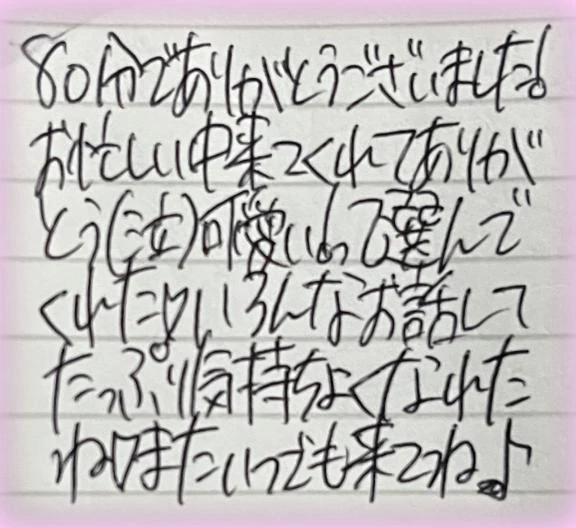 80分でありがとうございました!
お忙しい中来てくれてありが
とう(泣)可愛いって選んで
くれたりいろんなお話して
たっぷり気持ちよくなれた
ねまたいつでも来てね♪